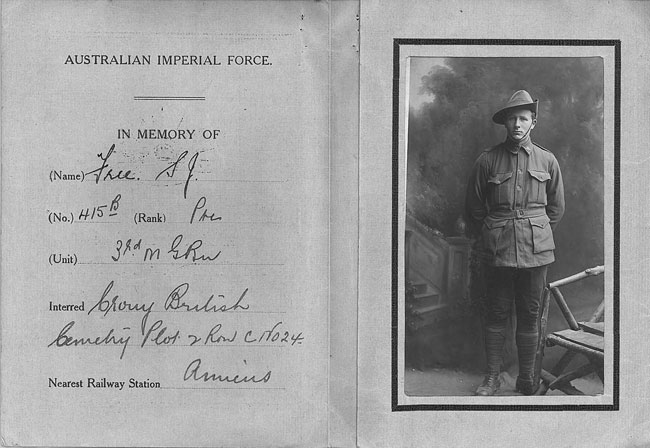 AUSTRALIAN IMPERIAL FORCE.
IN MEMORY OF
(Name) Free. S J.
(No.) 415B (Rank) Pte
(Unit) 3rd M G Bn
Interred Crouy British
Cemetery Plot 2 Row C No 24
Nearest Railway Station Amiens